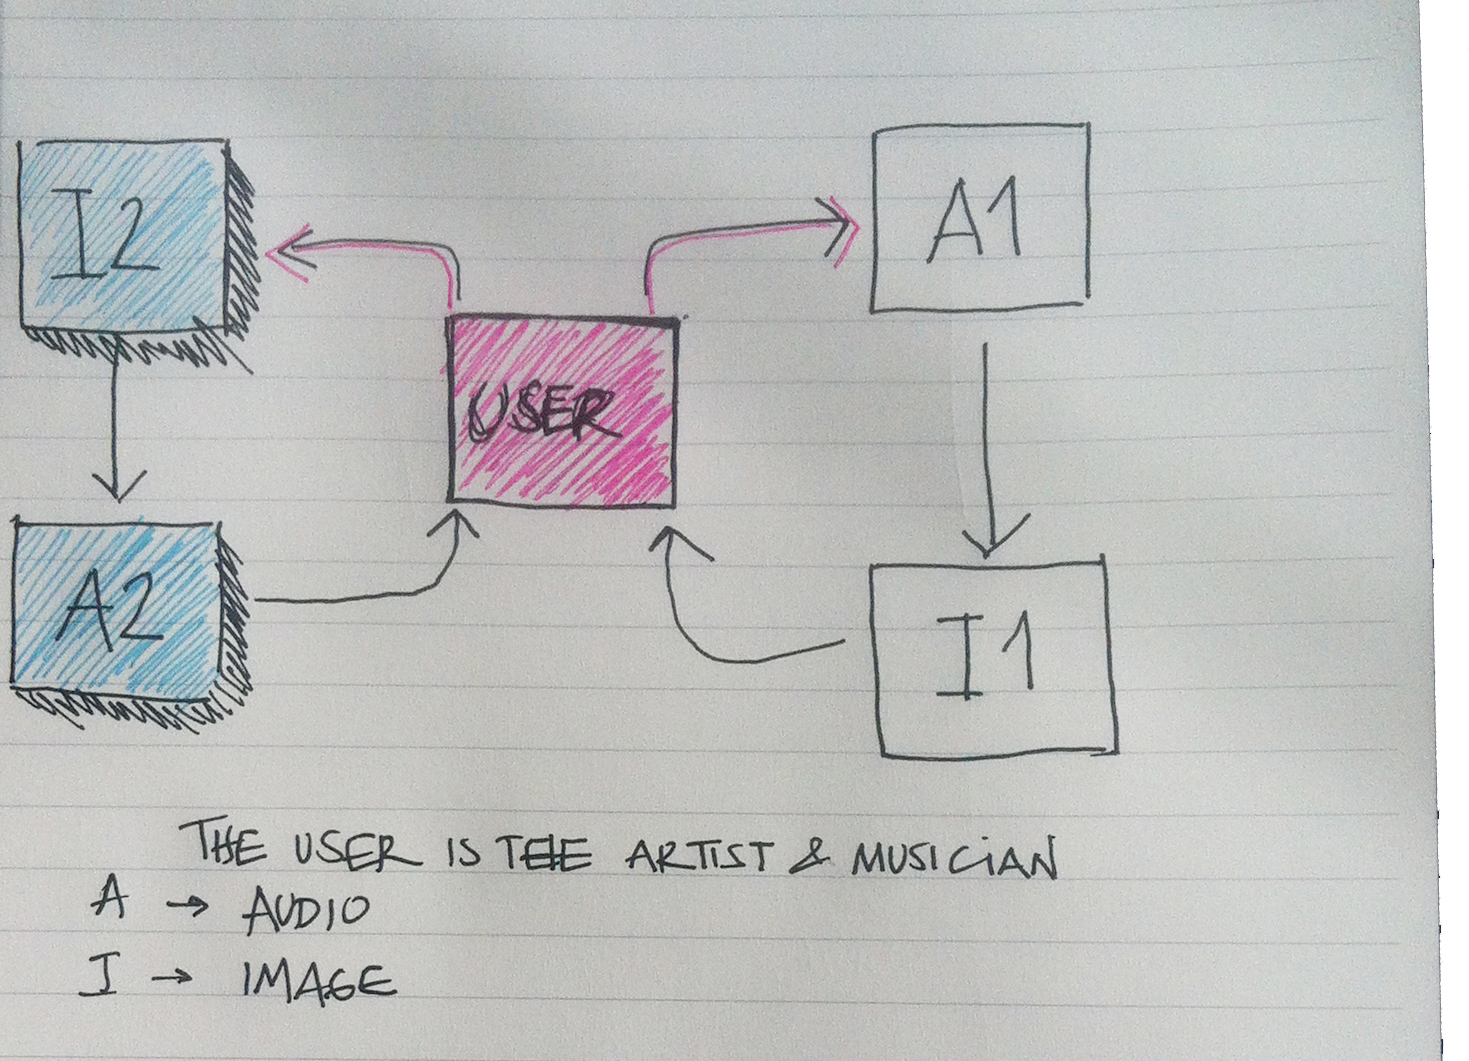 I2
A1
USER
A2
I1
THE USER IS THE ARTIST & MUSICIAN
A → AUDIO
I → IMAGE